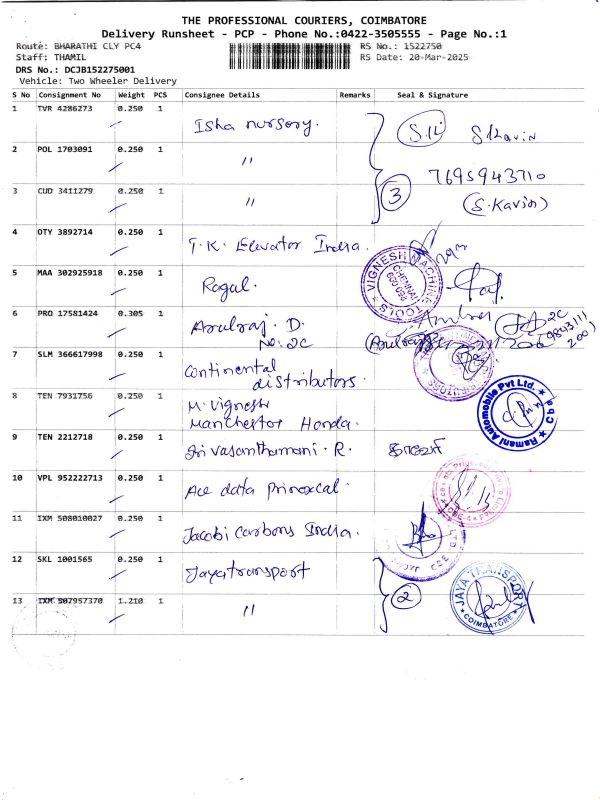 THE PROFESSIONAL COURIERS, COIMBATORE
Delivery Runsheet - PCP - Phone No.:0422-3505555 - Page No.:1
Route: BHARATHI CLY PC4 RS No.: 1522750
Staff: THAMIL RS Date: 20-Mar-2025
DRS No.: DCJB152275001
Vehicle: Two Wheeler Delivery
S No Consignment No Weight PCS Consignee Details Remarks Seal & Signature
1 TVR 4286273 0.250 1 Isha nursory. S.Kavin
2 POL 1703091 0.250 1 〃 7695943710
3 CUD 3411279 0.250 1 〃 3 (S.Kavin)
4 OTY 3892714 0.250 1 T.K. Elevator India.
VIGNESH MACHINE TOOLS
CHENNAI
5 MAA 302925918 0.250 1 Rogal.
6 PRO 17581424 0.305 1 Arulraj. D.
No. 2C
7 SLM 366617998 0.250 1 Continental
distributors.
8 TEN 7931756 0.250 1 M. Vignesh
Manchestor Honda.
Ramani Automobile Pvt Ltd.
Cbe
9 TEN 2212718 0.250 1 Sri vasanthamani. R.
10 VPL 952222713 0.250 1 Ace data
11 IXM 508010027 0.250 1 Jacobi Carbons India.
12 SKL 1001565 0.250 1 Jayatransport
13 IXM 507957370 1.210 1 〃 2
JAYA TRANSPORT
COIMBATORE